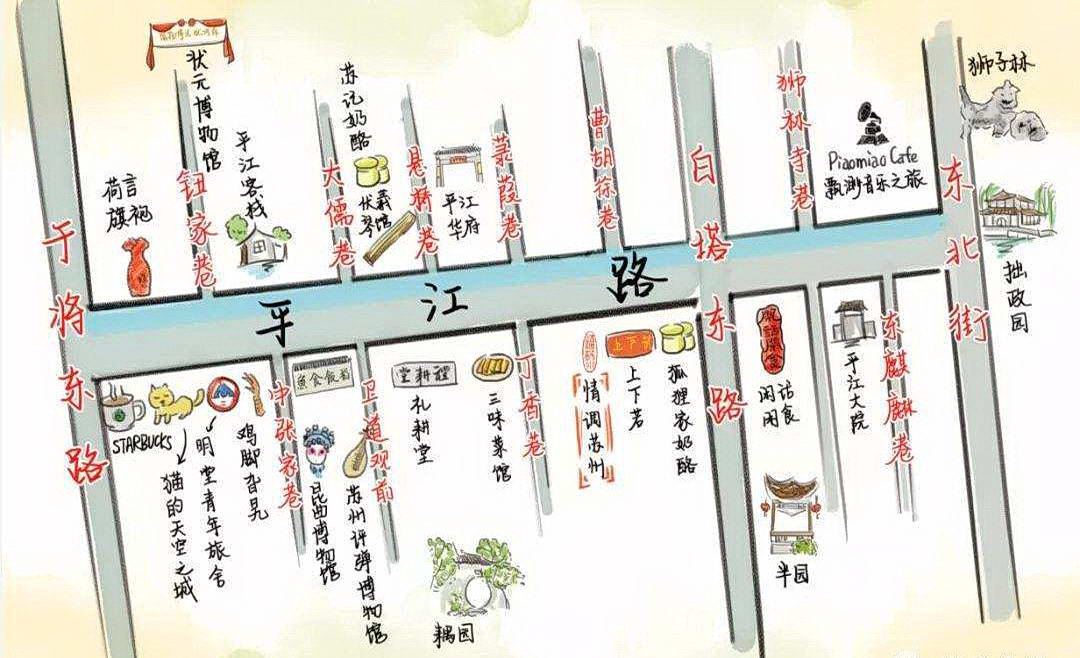 状元博物馆
荷言
旗袍
钮家巷
平江客栈
大儒巷
苏记奶酪
伏羲
琴馆
悬桥巷
平江
华府
菉葭巷
曹胡徐巷
白塔东路
狮林寺巷
Piaomiao Cafe
飘渺音乐之旅
东北街
狮子林
拙政园
干将东路
平江路
STARBUCKS
猫的天空之城
明堂青年旅舍
鸡脚旮旯
中张家巷
昆曲博物馆
卫道观前
苏州评弹博物馆
礼耕堂
三味菜馆
丁香巷
耦园
情调苏州
上下若
上下若
狐狸家奶酪
闲话
闲食
半园
平江大院
东麒麟巷